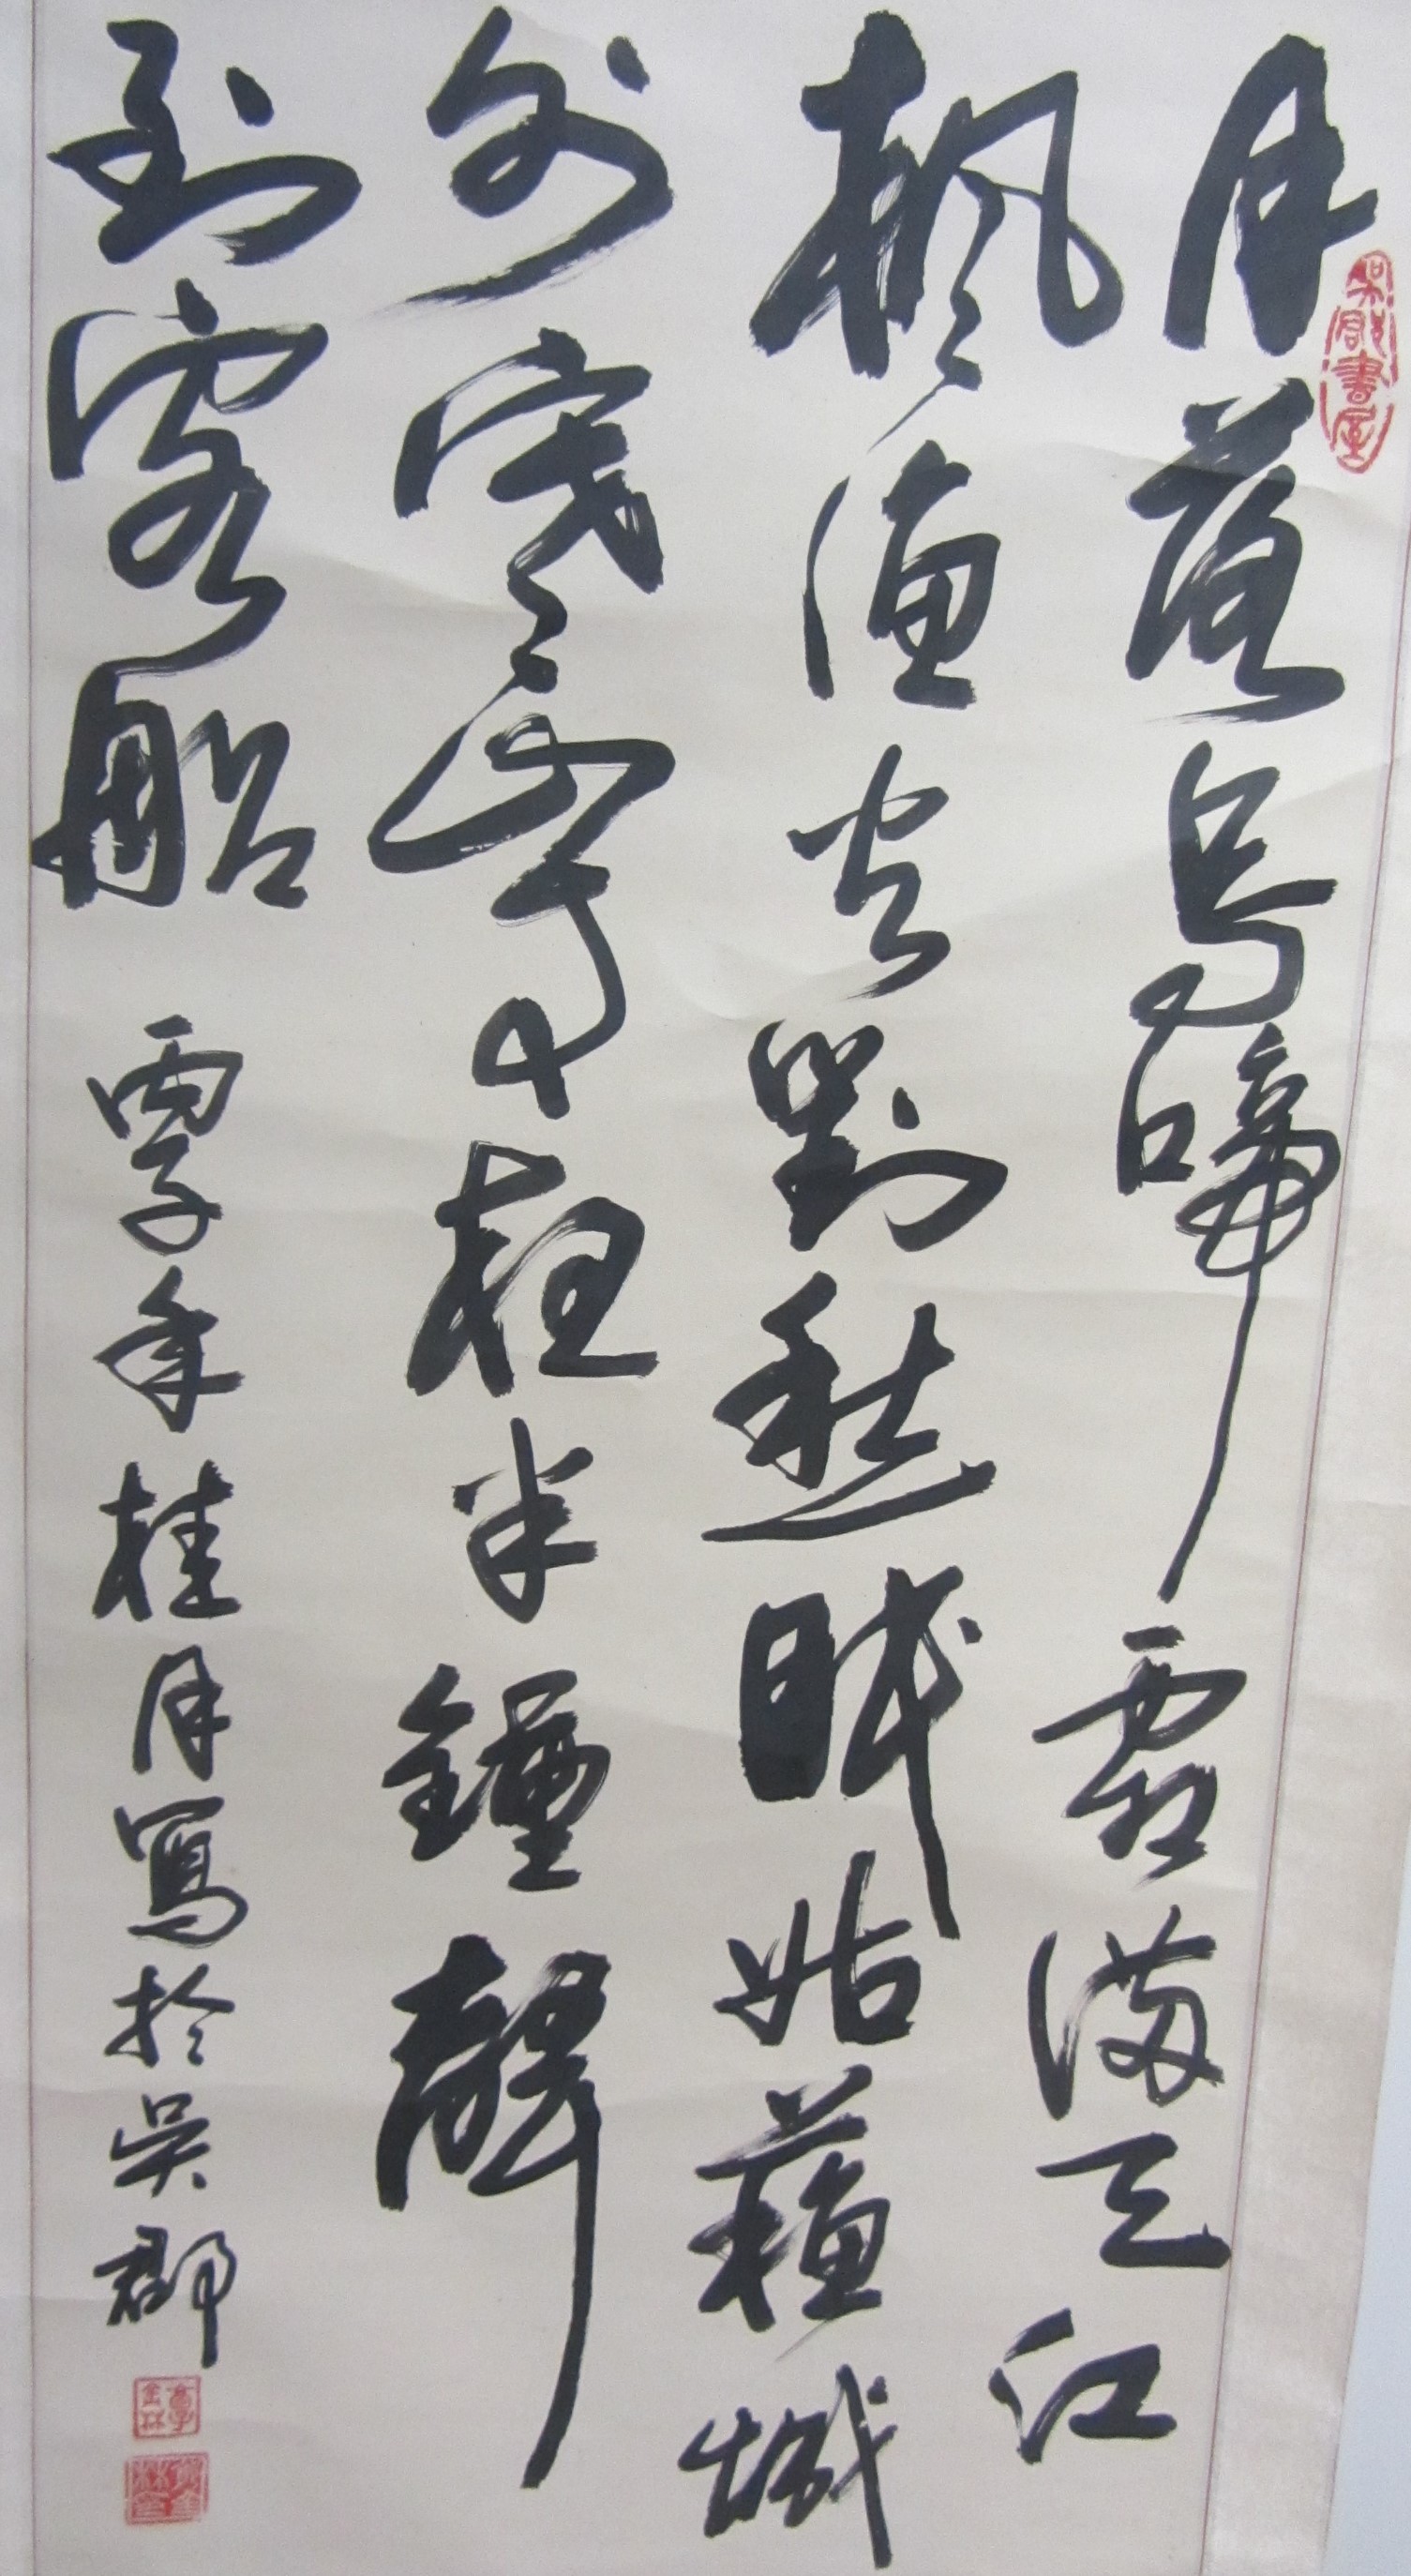 吳郡書屋
月落烏啼霜滿天江
楓漁火對愁眠姑蘇城
外寒山寺夜半鐘聲
到客船 年桂月寫於吳郡